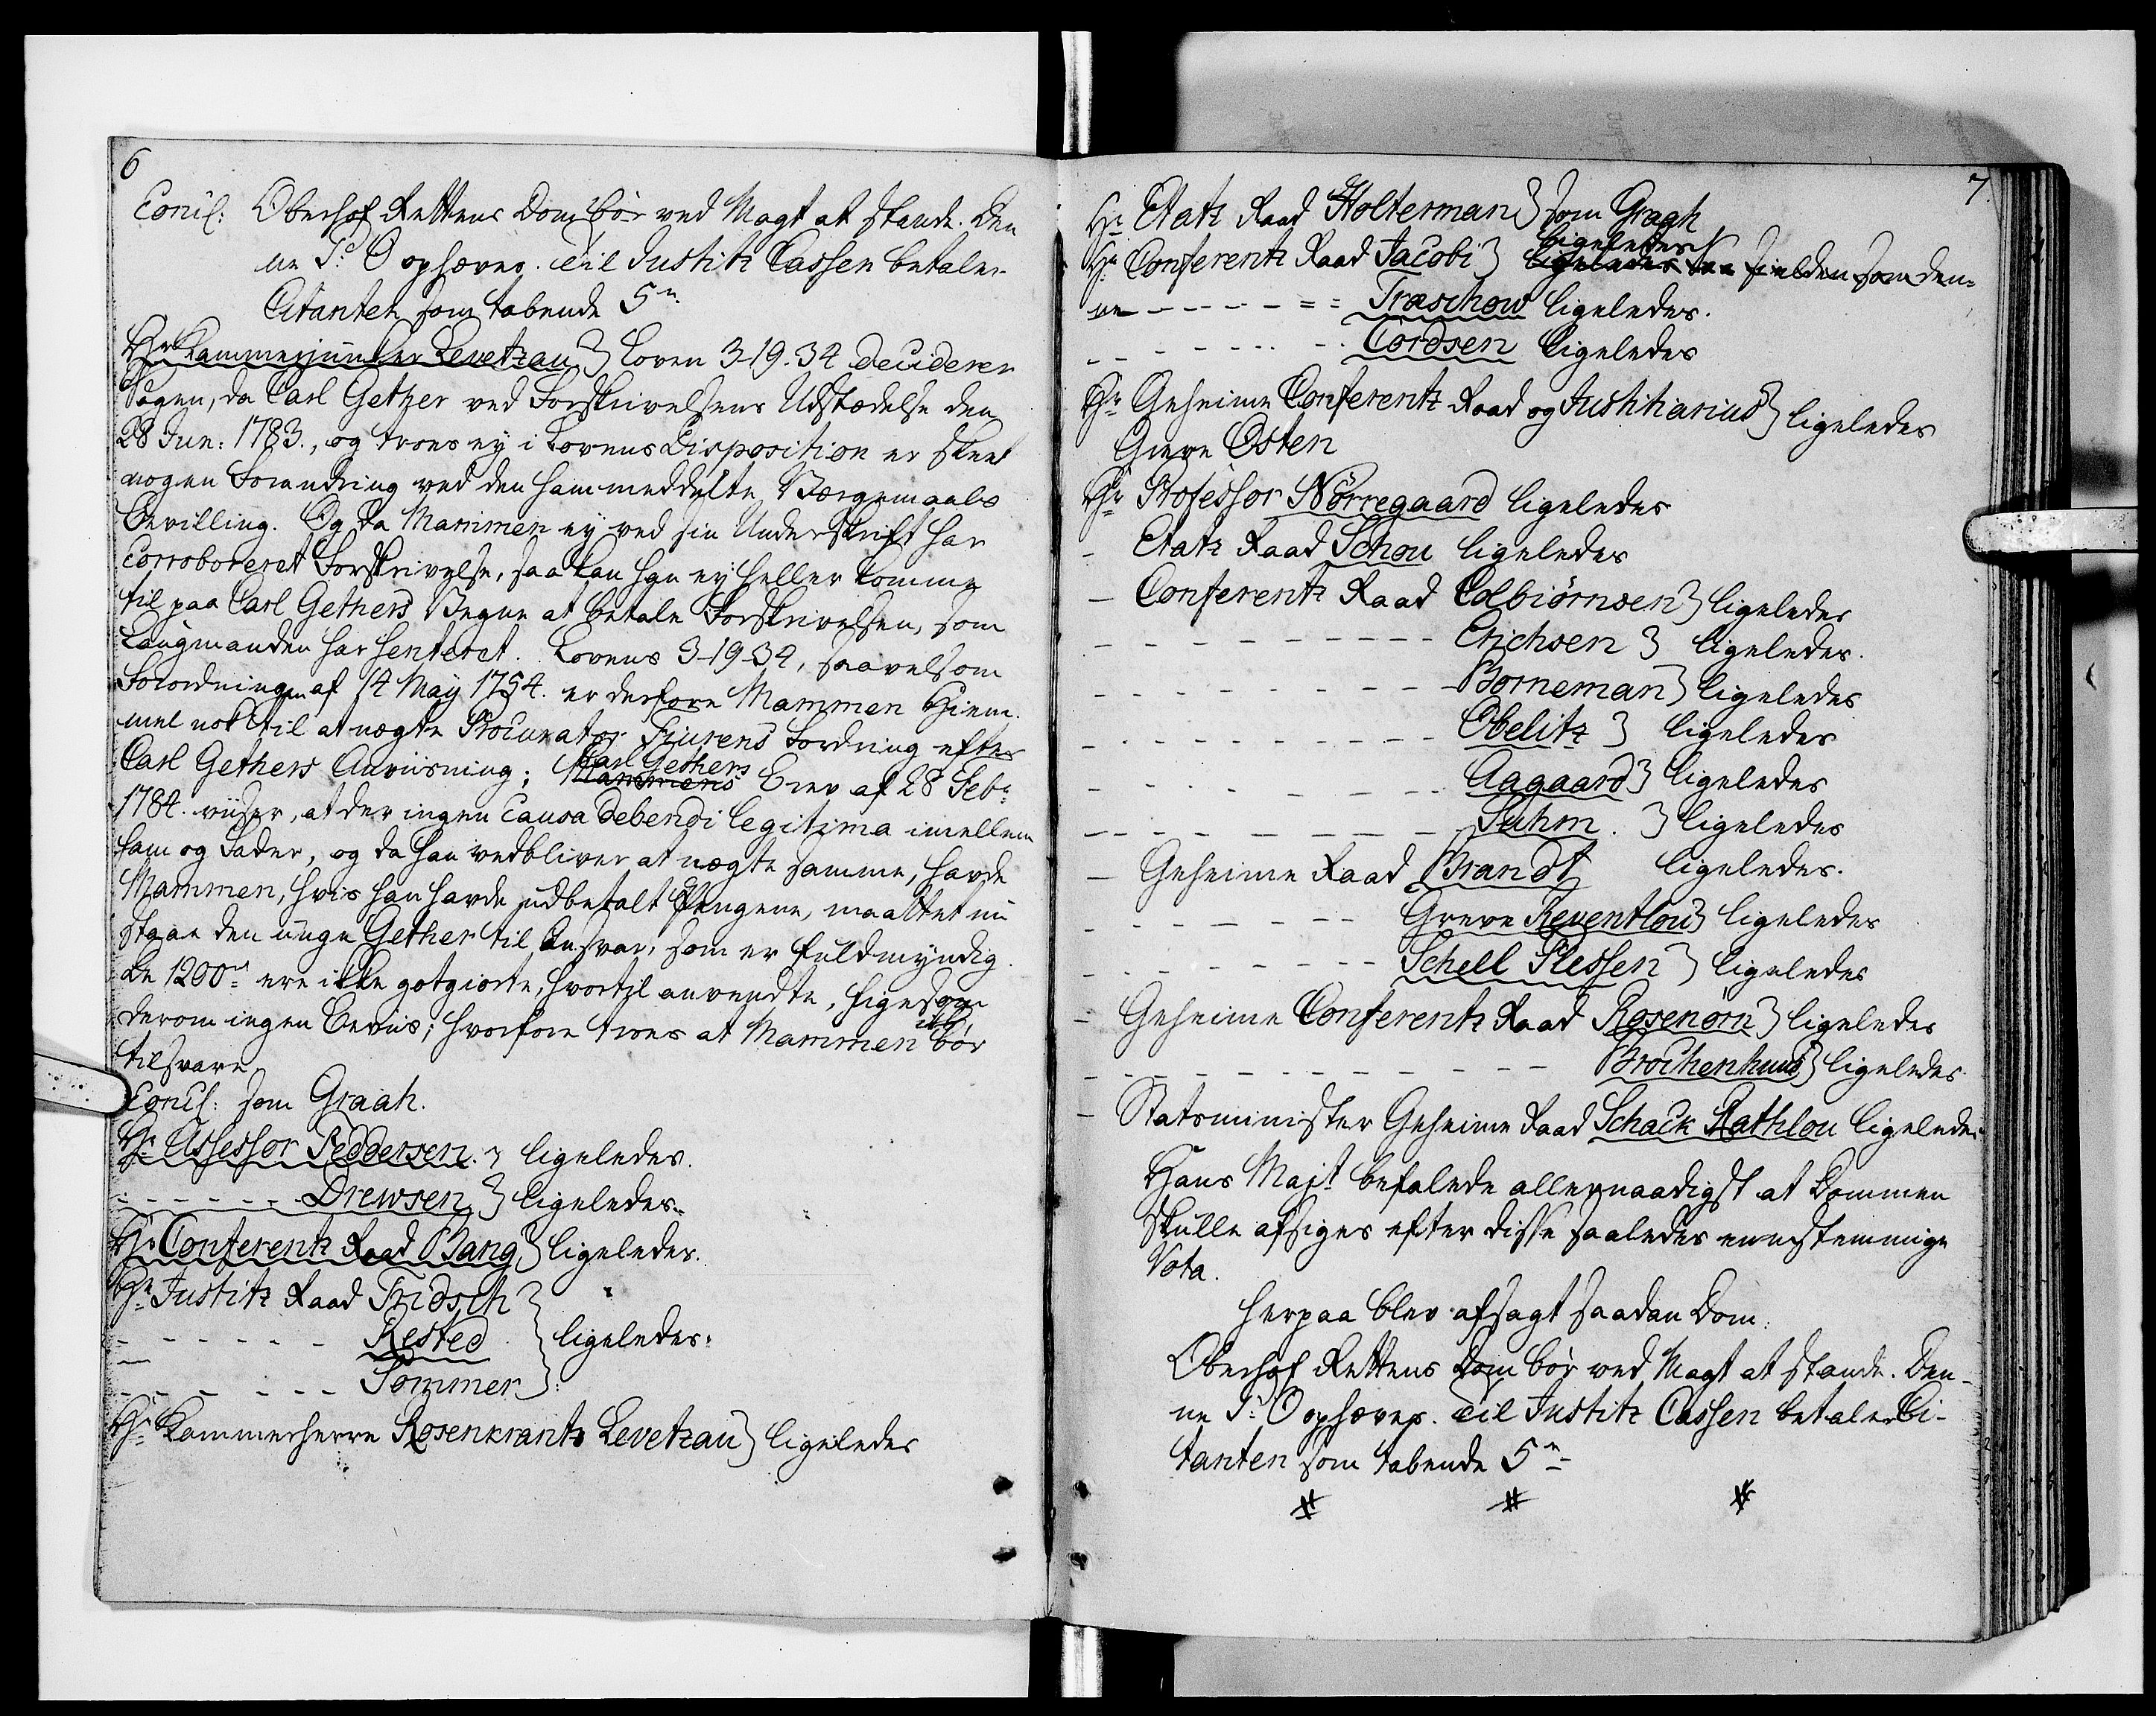 6
Concl: Oberhof Rettens Dom bør ved Magt at stande. Den
ne S: O ophæves. Til Justitz Cassen betaler
Citanten som tabende 5 rd
Hr Kammerjunker Levetzau} Loven 3-19-34 deciderer
Sagen, da Carl Gether ved Forskrivelsens Udstædelse den
28 Jun: 1783., og troes ey i Lovens Disposition er skeet
nogen Forandring ved den ham meddelte Værgemaals
Bevilling. Og da Mammen ey ved sin Underskrift har
corroboreret Forskrivelse, saa kan han ey heller komme
til paa Carl Gethers Vegne at betale Forskrivelsen, som
Laugmanden har senteret. Lovens 3-19-34, saavelsom
Forordningen af 14 May 1754. er derfore Mammen Hiem-
mel nok til at nægte Procurator Fiurens Fordring efter
Carl Gethers Anviisning; Mammens Carl Gethers Brev af 28 Febr
1784. viiser, at der ingen causa debendi legitima imellem
ham og Fader, og da han vedbliver at nægte samme, havde
Mammen, hvis han havde udbetalt Pengene, maattet nu
staae den unge Gether til Ansvar, som er fuldmyndig.
De 1200 rd ere ikke gotgiorte, hvortil anvendte, ligesom
derom ingen Beviis; hvorfore troes at Mammen ikke bør
tilsvare
Concl: som Graah.
Hr Assessor Feddersen. } ligeledes.
- - - - - - Drewsen } ligeledes.
Hr Conferentz Raad Bang } ligeledes.
Hr Justitz Raad Fridsch
- - - - - - Rested } ligeledes:
- - - - - - Sommer
Hr Kammerherre Rosenkrantz Levetzau } ligeledes
7.
Hr Etatz Raad Holterman } som Graah
Hr Conferentz Raad Jacobi } ligeledes
ne - - - - - = = Træschow ligeledes.
- - - - - - - Cordsen ligeledes
Hr Geheime Conferentz Raad og Justitiarius } ligeledes
Greve Osten
Hr Professor Nörregaard ligeledes
- Etatz Raad Schou ligeledes
- Conferentz Raad Colbiørnsen } ligeledes
- - - - - - - - - Erichsen } ligeledes.
- - - - - - - - - Borneman } ligeledes
- - - - - - - - - Obelitz } ligeledes
- - - - - - - - - Aagaard } ligeledes
- - - - - - - - - Suhm. } ligeledes
- Geheime Raad Brandt ligeledes.
- - - - - - - Greve Reventlou } ligeledes
- - - - - - - Schell Plessen } ligeledes
- Geheime Conferentz Raad Rosenørn } ligeledes
- - - - - - - - - - - Brockenhuus } ligeledes
- Statsminister Geheime Raad Schack Rathlou ligeledes
Hans Majt befalede allernaadigst at Dommen
skulle afsiges efter disse saaledes eenstemmige
Vota.
Herpaa blev afsagt saadan Dom:
Oberhof Rettens Dom bør ved Magt at stande. Den-
ne S: O ophæves. Til Justitz Cassen betaler Ci-
tanten som tabende 5 rd